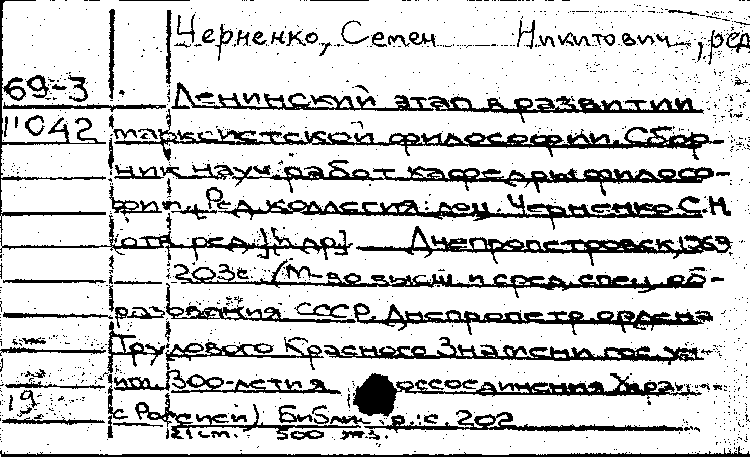 Черненко, Семен Никитович, ред
69-3 Ленинский этап в развитии
11042 марксистской философии. Сбор-
ник науч. работ кафедры филосо-
фии. [Ред. коллегия: доц. Черненко С.Н.
(отв. ред.) и др.] — Днепропетровск, 1969
203 с. (М-во высш. и сред. спец. об-
разования СССР. Днепропетр. ордена
Трудового Красного Знамени гос. ун-
им. 300-летия воссоединения Украи
19 с Россией). Библиогр.: с. 202
21 см. 500 экз.